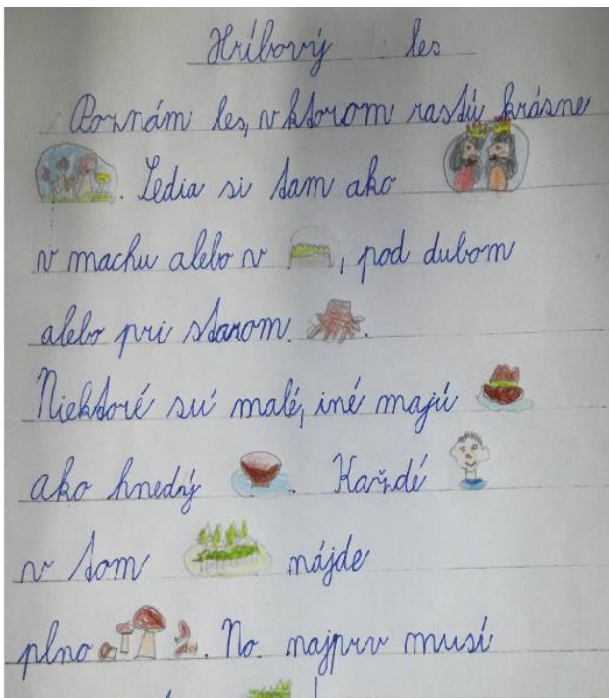 Hríbový les
Poznám les, v ktorom rastú krásne
. Sedia si tam ako
v machu alebo v , pod dubom
alebo pri starom .
Niektoré sú malé, iné majú
ako hnedý . Každé
v tom nájde
plno . No najprv musí